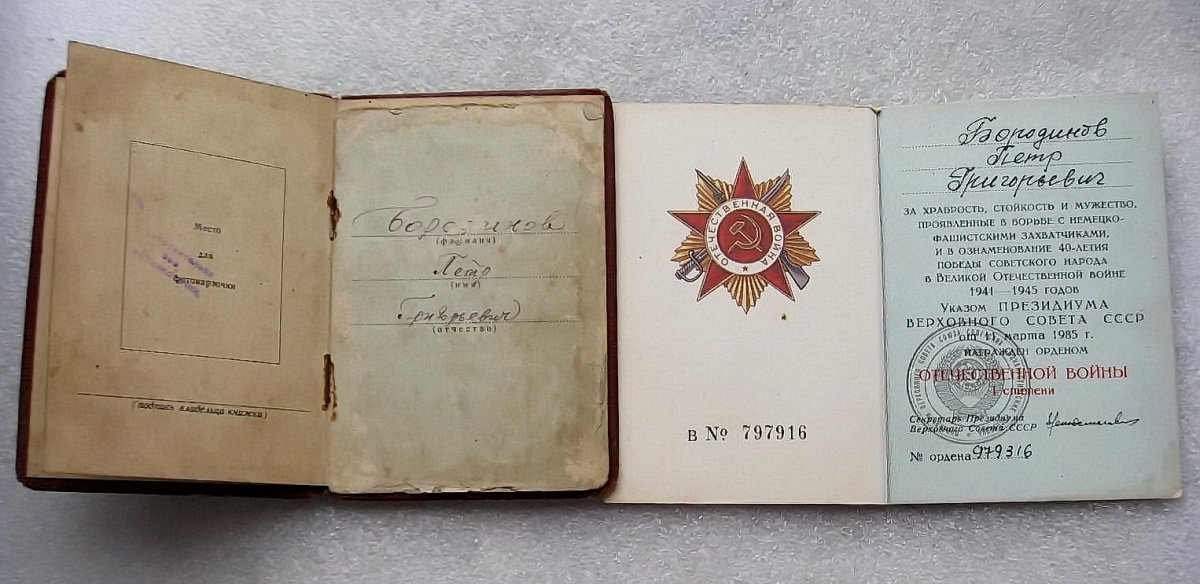 Место
для
фотокарточки
(подпись владельца книжки)
(фамилия)
Петр
(имя)
Григорьевич
(отчество)
ОТЕЧЕСТВЕННАЯ ВОЙНА
В № 797916
Бородинов
Петр
Григорьевич
ЗА ХРАБРОСТЬ, СТОЙКОСТЬ И МУЖЕСТВО,
ПРОЯВЛЕННЫЕ В БОРЬБЕ С НЕМЕЦКО-
ФАШИСТСКИМИ ЗАХВАТЧИКАМИ,
И В ОЗНАМЕНОВАНИЕ 40-ЛЕТИЯ
ПОБЕДЫ СОВЕТСКОГО НАРОДА
В ВЕЛИКОЙ ОТЕЧЕСТВЕННОЙ ВОЙНЕ
1941—1945 ГОДОВ
УКАЗОМ ПРЕЗИДИУМА
ВЕРХОВНОГО СОВЕТА СССР
от 11 марта 1985 г.
НАГРАЖДЕН ОРДЕНОМ
ОТЕЧЕСТВЕННОЙ ВОЙНЫ
I степени
Секретарь Президиума
Верховного Совета СССР
№ ордена 979316